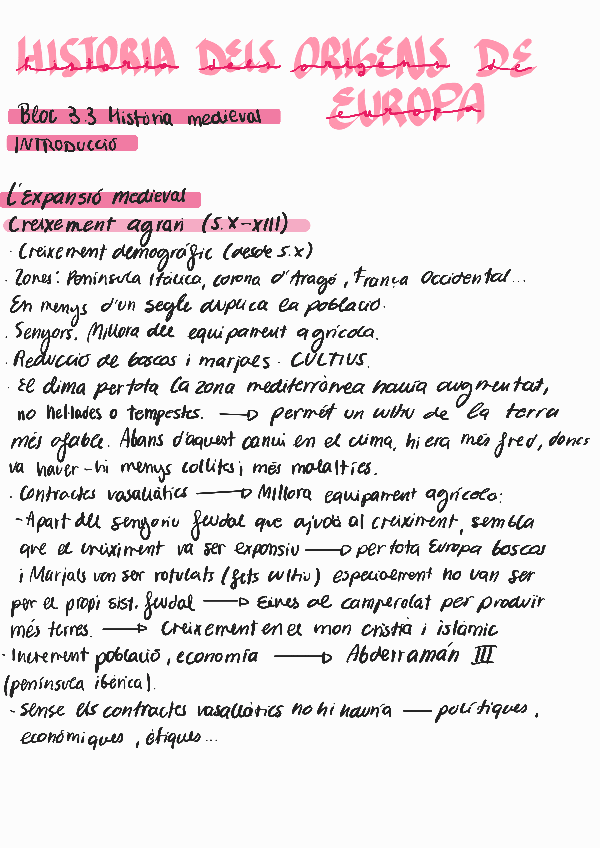 HISTORIA DELS ORIGENS DE
historia dels origens de
EUROPA
europa
Bloc 3.3 Història medieval
INTRODUCCIÓ
L'Expansió medieval
Creixement agrari (S.X-XIII)
· Creixement demogràfic (desde s.x)
· Zones: Península Itàlica, corona d'Aragó, França Occidental...
En menys d'un segle duplica la població.
· Senyors. Millora del equipament agrícola.
· Reducció de boscos i marjals · CULTIUS.
· El clima per tota la zona mediterrànea havia augmentat,
no hellades o tempestes. → permét un cultiu de la terra
més afable. Abans d'aquest canvi en el clima, hi era més fred, doncs
va haver-hi menys collites i més malalties.
· Contractes vasallàtics → Millora equipament agrícola:
- Apart del senyoriu feudal que ajuda al creiximent, sembla
que el creiximent va ser expansiu → per tota Europa boscos
i Marjals van ser roturats (fets cultiu) especialment no van ser
per el propi sist. feudal → Eines de camperolat per produir
més terres. → Creixement en el mon cristià i islàmic
· Increment població, economía → Abderramán III
(península ibérica).
- Sense els contractes vasallàtics no hi hauria — polítiques,
econòmiques, ètiques...